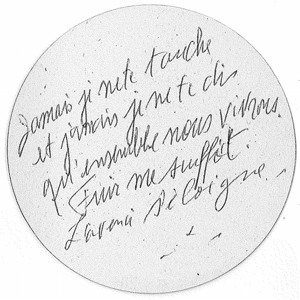 Jamais je ne te touche
et jamais je ne te dis
qu'ensemble nous vivrons.
me suffit.
L'avenir s'éloigne